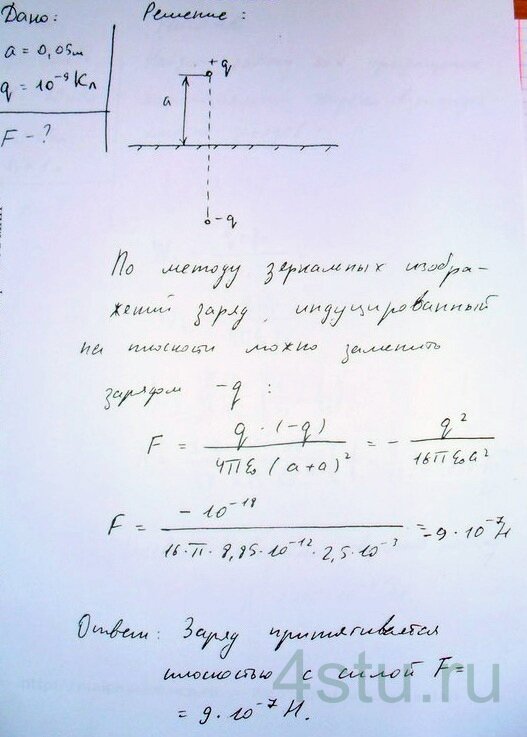 Дано: Решение:
a = 0,05м
q = 10⁻⁹ Кл
F - ?
+q
a
-q
По методу зеркальных изобра-
жений заряд, индуцированный
на плоскости можно заменить
зарядом -q :
F = q·(-q) / 4πε₀(a+a)² = - q² / 16πε₀a²
F = -10⁻¹⁸ / 16·π·8,85·10⁻¹²·2,5·10⁻³ = -9·10⁻⁷Н
Ответ: Заряд притягивается
плоскостью с силой F=
= 9·10⁻⁷ Н.
4stu.ru